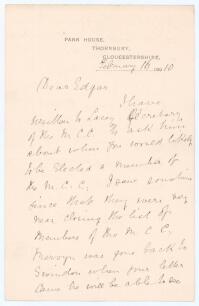 PARK HOUSE,
THORNBURY,
GLOUCESTERSHIRE.
February 16 1910
Dear Edgar
I have
written to Lacey Secretary
of the M.C.C. to ask him
about when you would likely
to be elected a member of
the M.C.C. I saw sometime
since that they were very
near closing the list of
Members of the M.C.C.
Mervyn was gone back to
Swindon when your letter
came he will be able to see